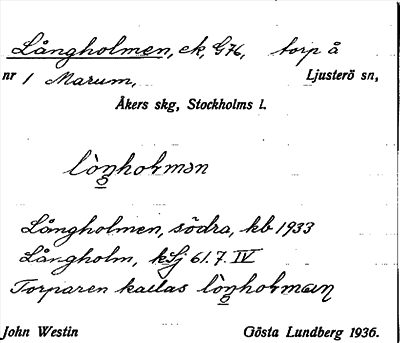 Långholmen, ek, G76, torp å
nr 1 Marum, Ljusterö sn,
Åkers skg, Stockholms l.
lòŋholmən
Långholmen, södra, kb 1933
Långholm, kSj 61.7.IV
Torparen kallas lòŋholmaɳ
John Westin Gösta Lundberg 1936.